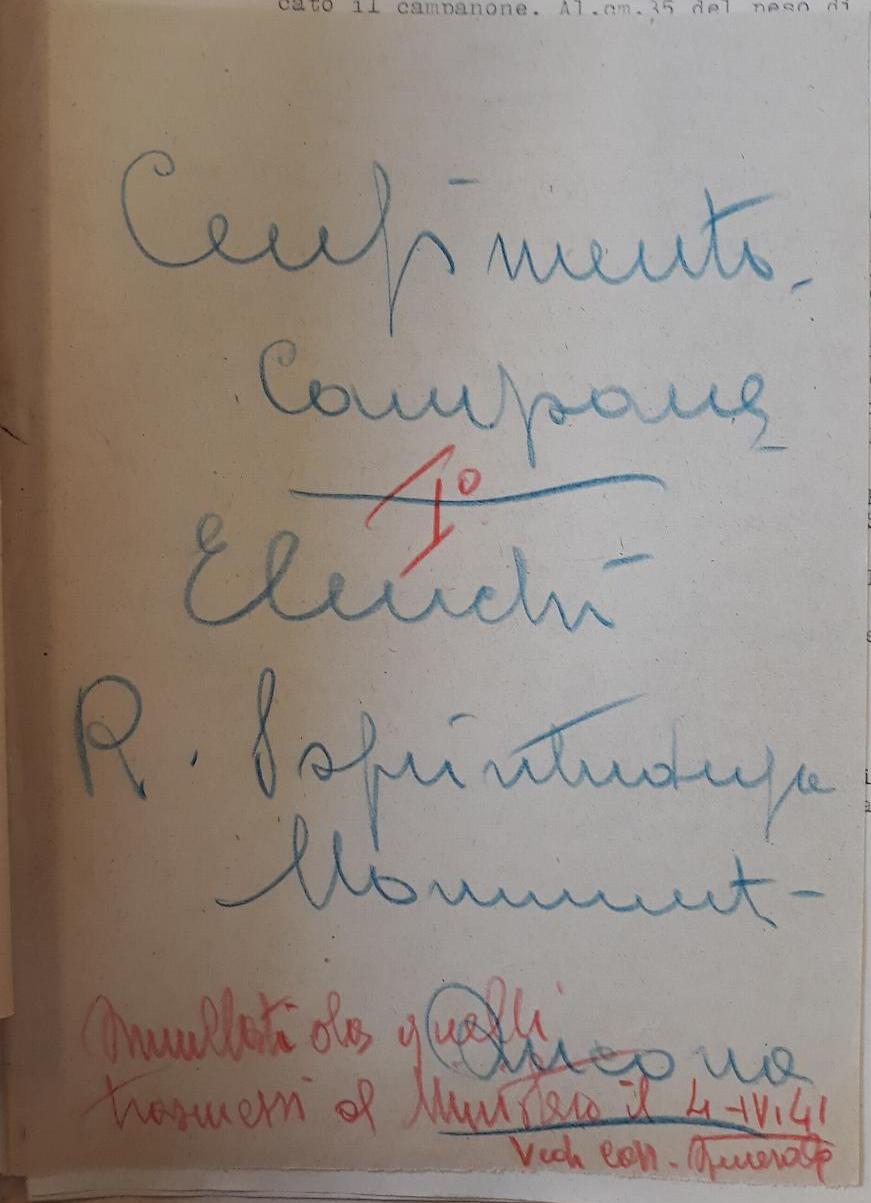 cato il campanone. Al.cm.35 del peso di
Censimento
Campane
1°
Elenchi
R. Soprintendenza
Monument-
Ancona
Annullati da quelli
trasmessi al Ministero il 4-IV.41
Vedi corr. Generale